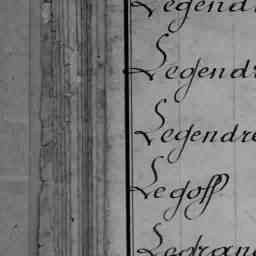 Legendr
Legendr
Legendre
Legoff
Legran